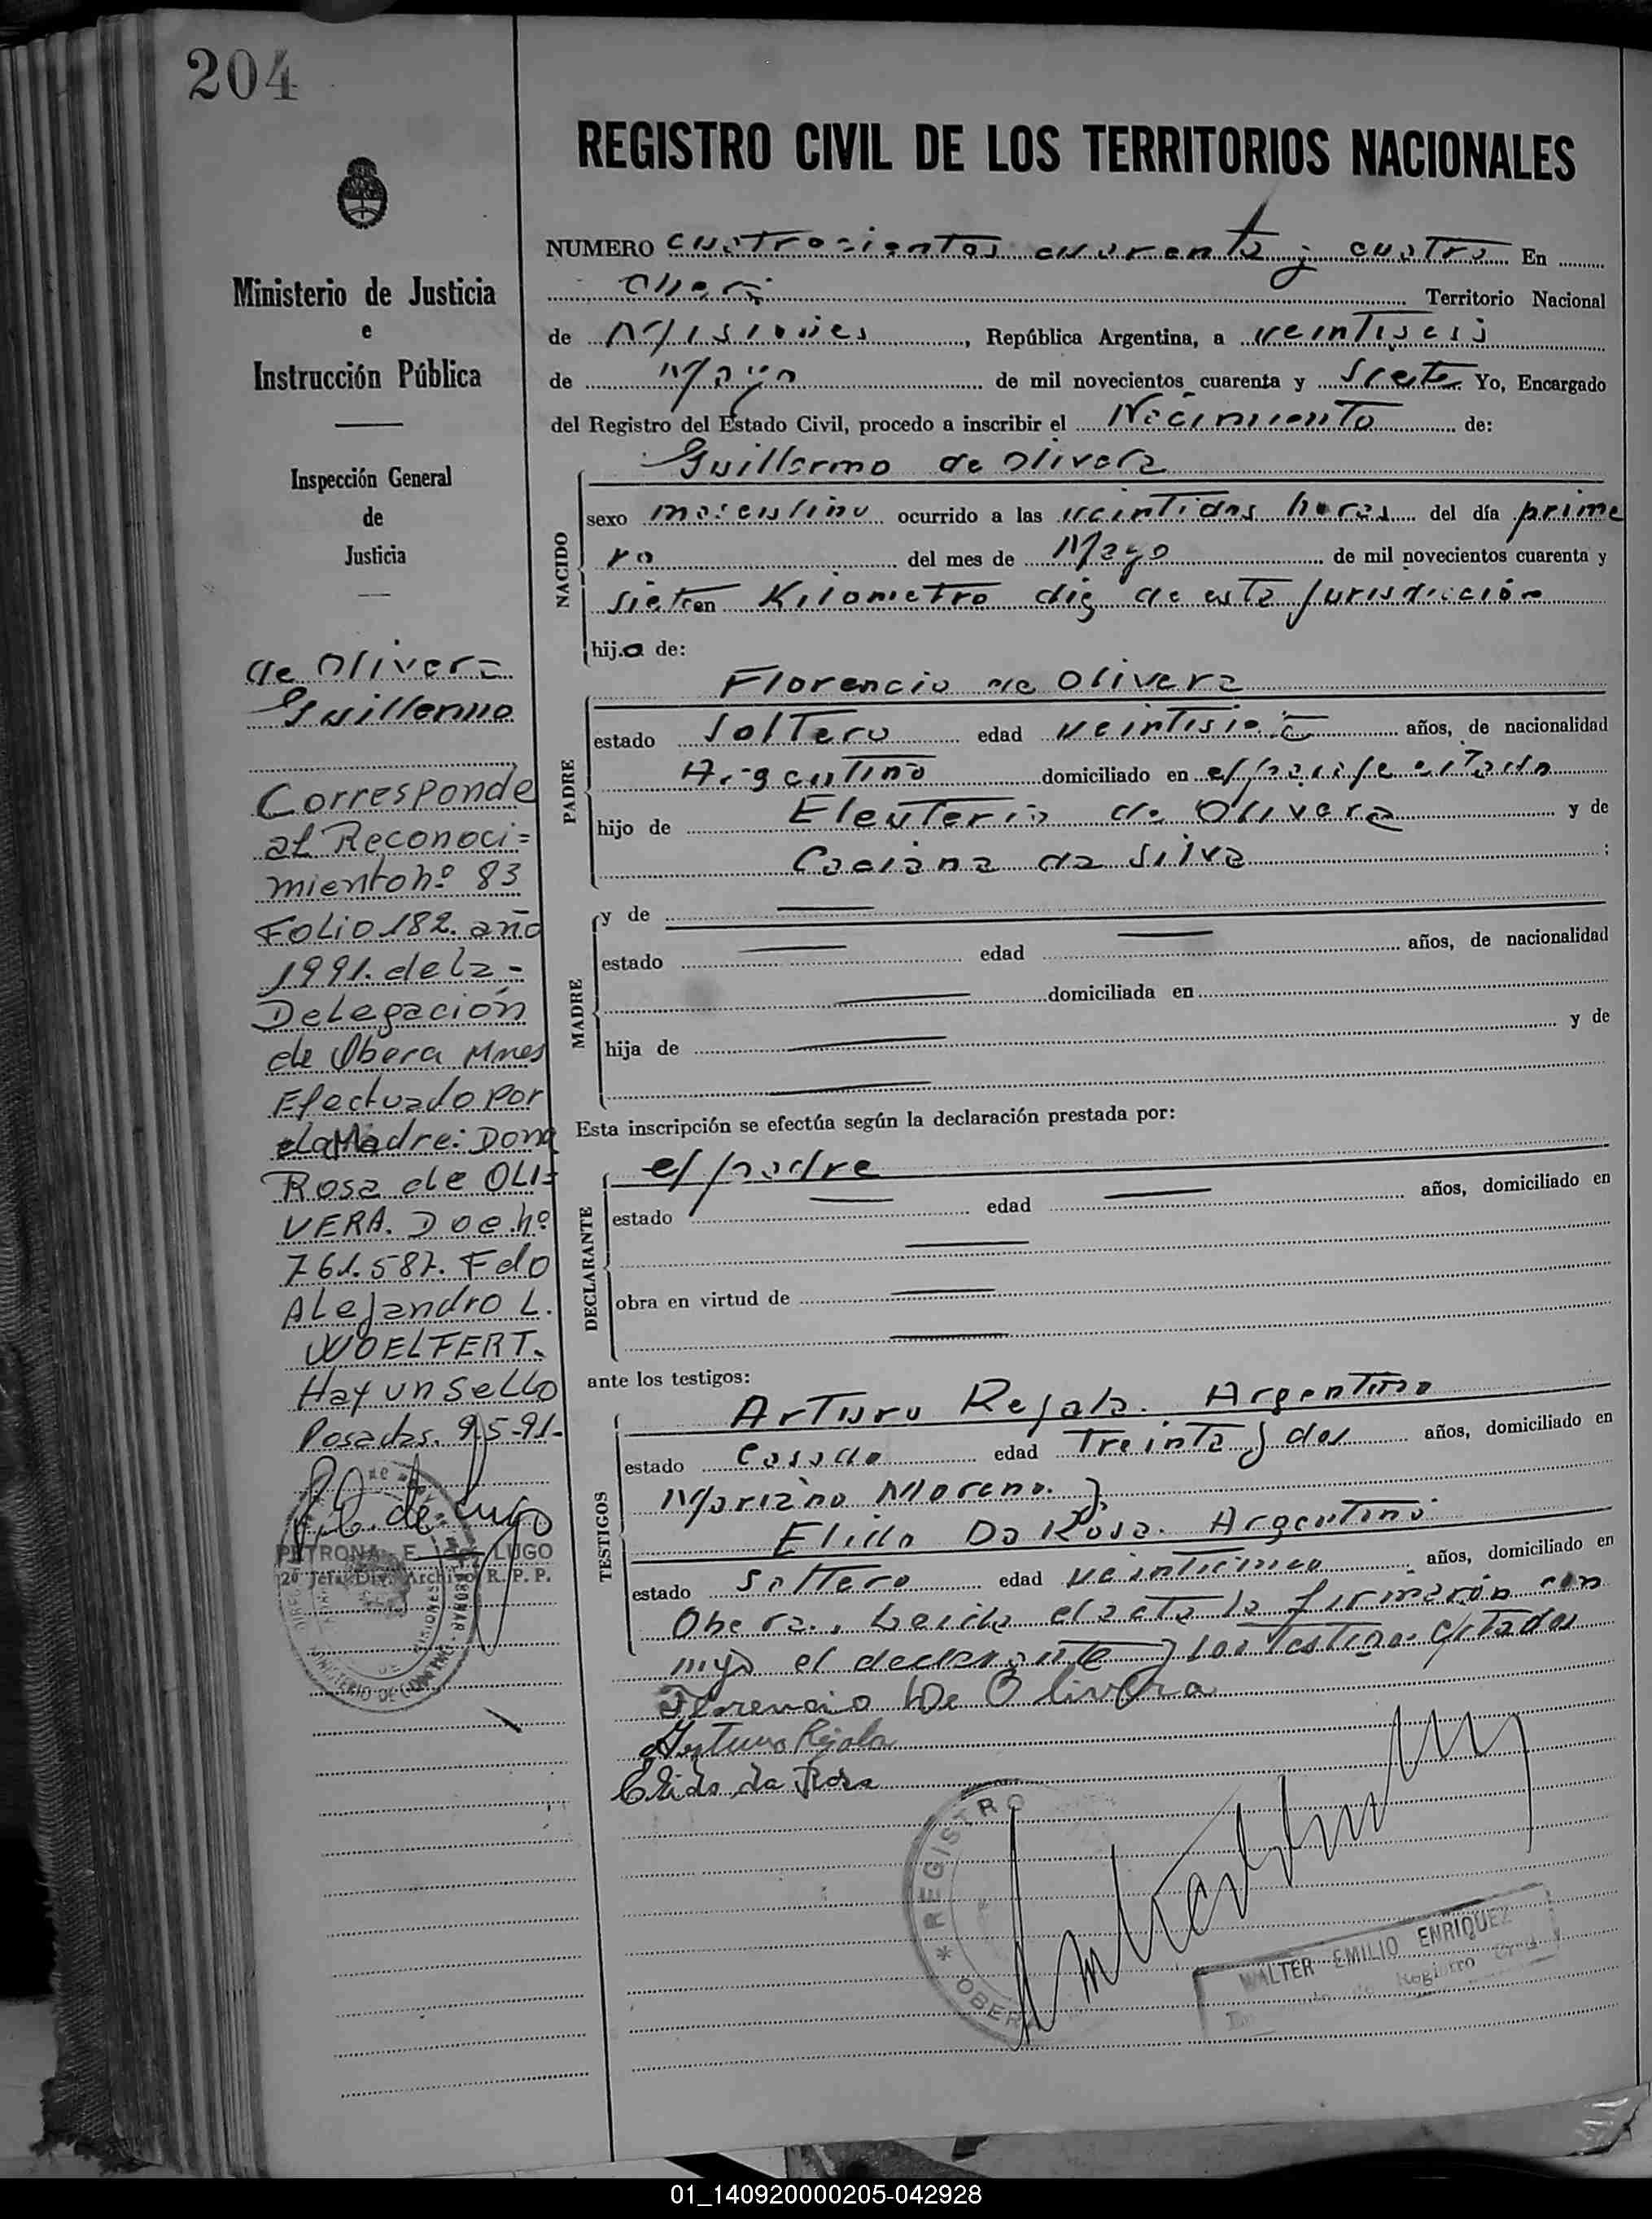 204
Ministerio de Justicia
e
Instrucción Pública
Inspección General
de
Justicia
de Olivera
Guillermo
Corresponde
al Reconoci=
miento nº 83
Folio 182. año
1991. de la -
Delegación
de Obera Mnes
Efectuado Por
la Madre: Dona
Rosa de OLI=
VERA. Doc. nº
761.587. Fdo
Alejandro L.
WOELFERT.
Hay un sello
Posadas. 9-5-91-
P. E. de Lugo
PETRONA E. de LUGO
2º Jefa Div. Archivo R. P. P.
REGISTRO CIVIL DE LOS TERRITORIOS NACIONALES
NUMERO cuatrocientos cuarenta y cuatro En
Oberá Territorio Nacional
de Misiones, República Argentina, a veintiseis
de Mayo de mil novecientos cuarenta y Siete Yo, Encargado
del Registro del Estado Civil, procedo a inscribir el Nacimiento de:
NACIDO
Guillermo de Olivera
sexo masculino ocurrido a las veintidos horas del día prime
ro del mes de Mayo de mil novecientos cuarenta y
siete en Kilometro diez de esta Jurisdicción
hijo de:
PADRE
Florencio de Olivera
estado Soltero edad veintisiete años, de nacionalidad
Argentino domiciliado en el paraje citado
hijo de Eleuterio de Olivera y de
da Silva ;
MADRE
y de
estado edad años, de nacionalidad
domiciliada en
hija de y de
Esta inscripción se efectúa según la declaración prestada por:
DECLARANTE
el padre
estado edad años, domiciliado en
obra en virtud de
ante los testigos:
TESTIGOS
Arturo Rejala. Argentino
estado Casado edad Treinta y dos años, domiciliado en
Mariano Moreno. y
Elido Da Rosa. Argentino
estado Soltero edad veinticinco años, domiciliado en
Obera. Leida el acta la firmarón con
migo el declarante y los testigos citados
Florencio De Olivera
Arturo Rejala
Elido da Rosa
* REGISTRO
OBERA
WALTER EMILIO ENRIQUEZ
Encargado de Registro Civil
01_140920000205-042928